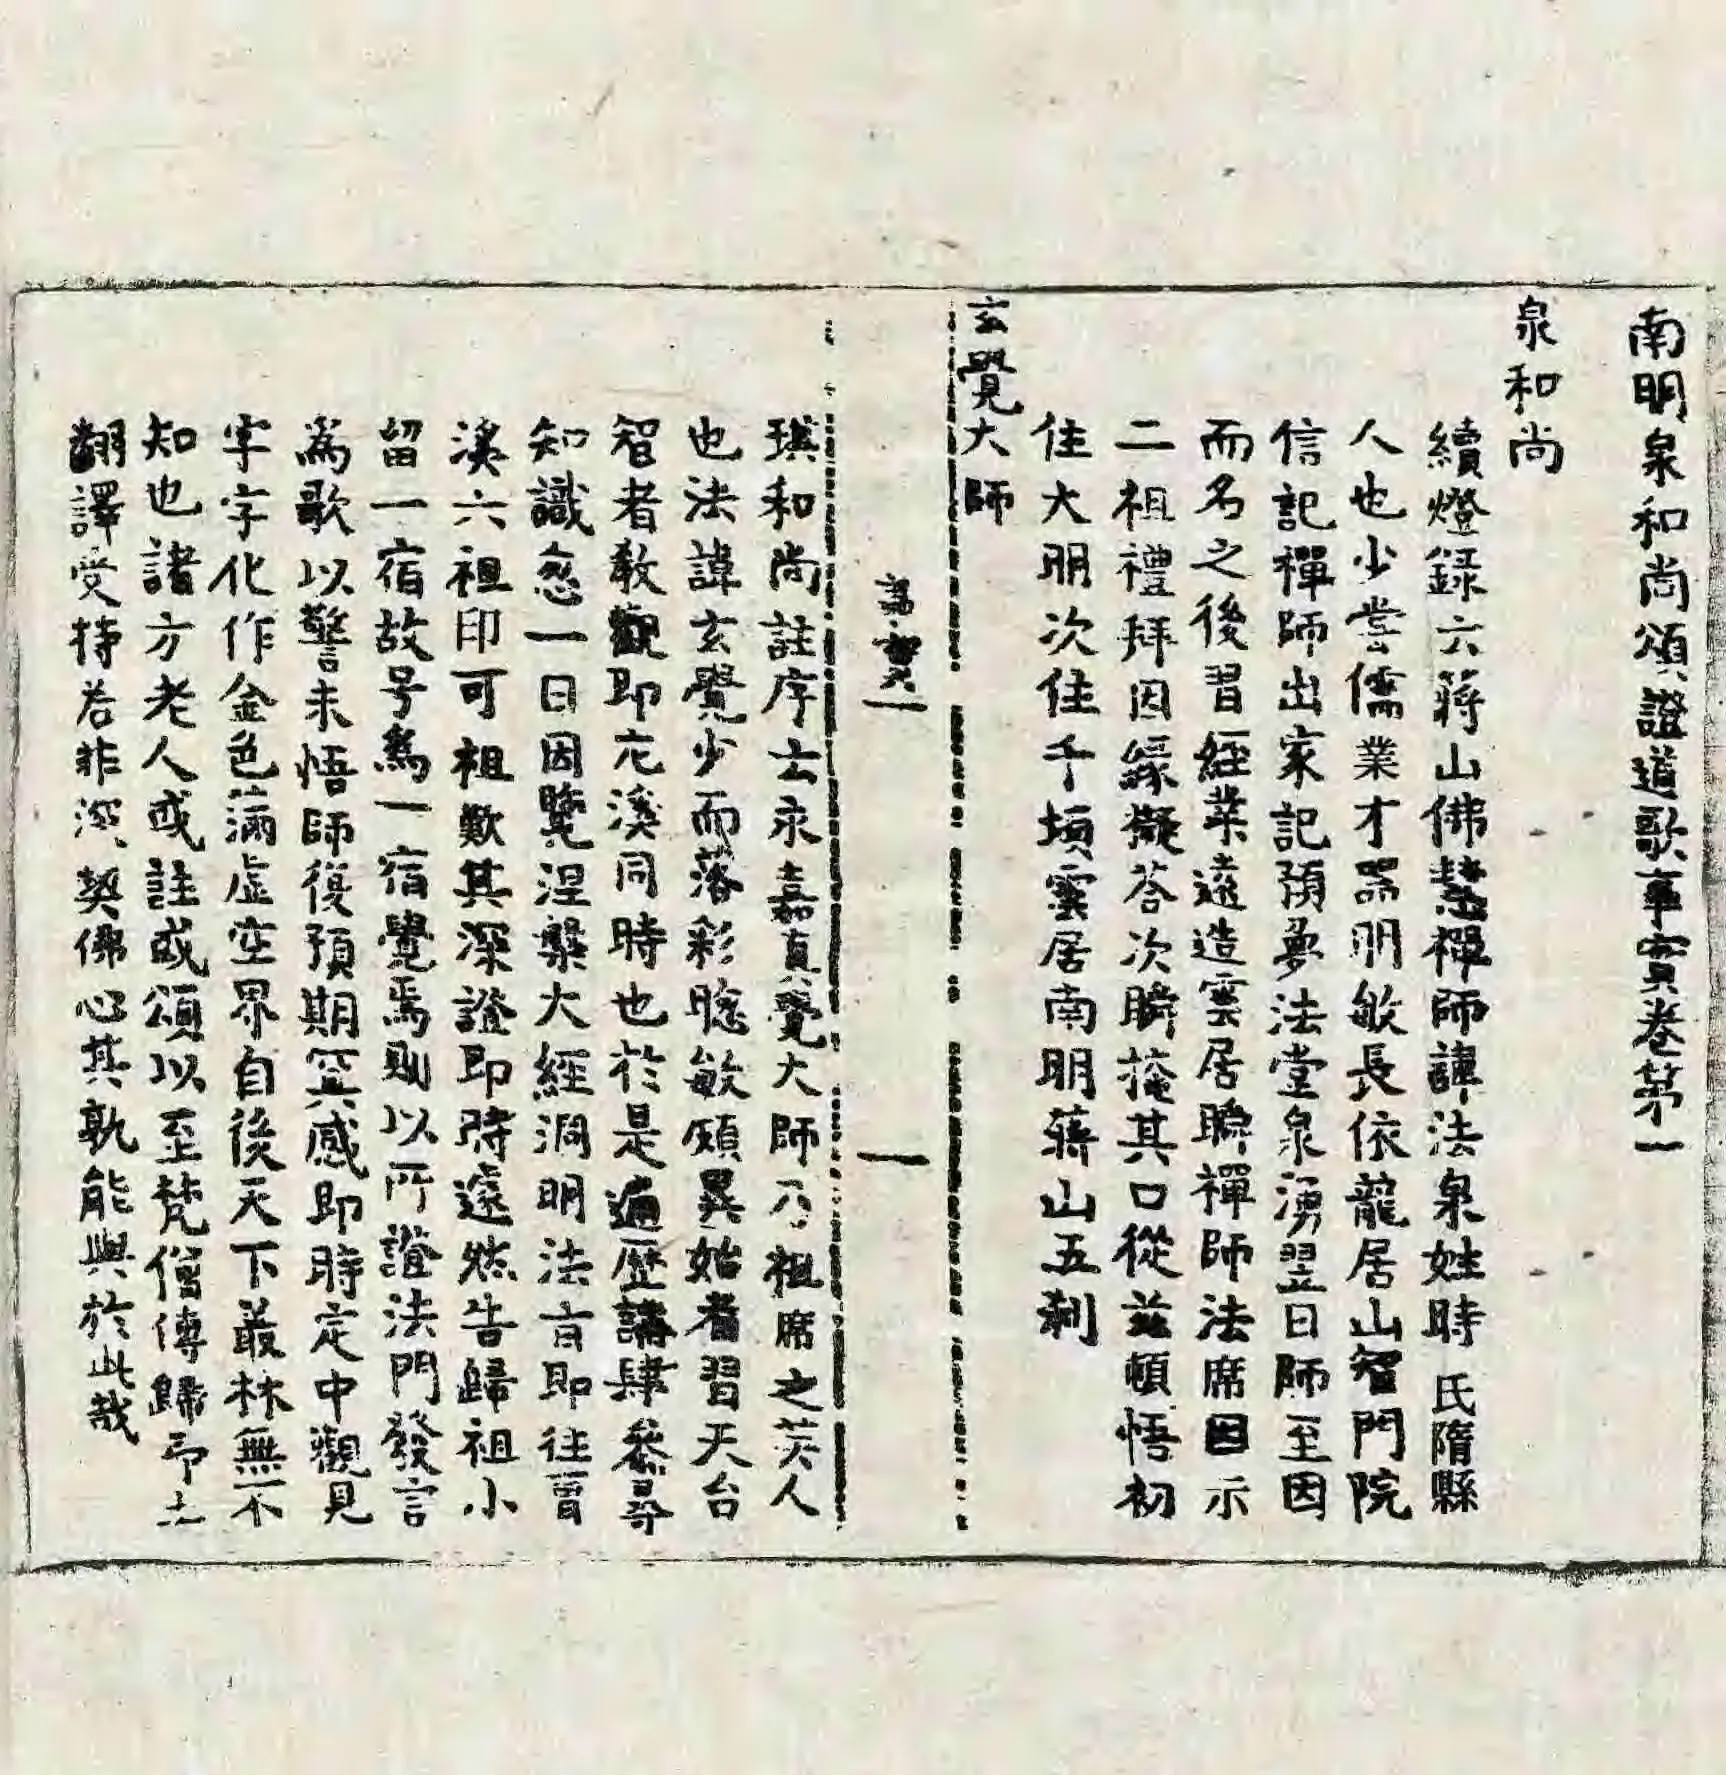 南明泉和尚頌證道歌事實卷第一
泉和尚
續燈錄六蔣山佛慧禪師諱法泉姓時氏隋縣
人也少嘗儒業才器明敏長依龍居山智門院
信記禪師出家記預夢法堂泉湧翌日師至因
而名之後習經業遠造雲居曉禪師法席因示
二祖禮拜因緣擬荅次瞬掩其口從茲頓悟初
住大明次住千頃雲居南明蔣山五刹
玄覺大師
事實一
一
琪和尚註序云永嘉真覺大師乃祖席之英人
也法諱玄覺少而落彩聰敏頗異始者習天台
智者教觀即左溪同時也於是遍歷講肆叅尋
知識忽一日因覽涅槃大經洞明法盲即往曺
溪六祖印可祖歎其深證即時遽然告歸祖小
留一宿故号爲一宿覺焉則以所證法門發言
爲歌以警未悟師復預期冥感即時定中觀見
字字化作金色滿虛空界自後天下叢林無不
知也諸方老人或註或頌以至梵僧傳歸印土
翻譯受持若非深契佛心其孰能與於此哉